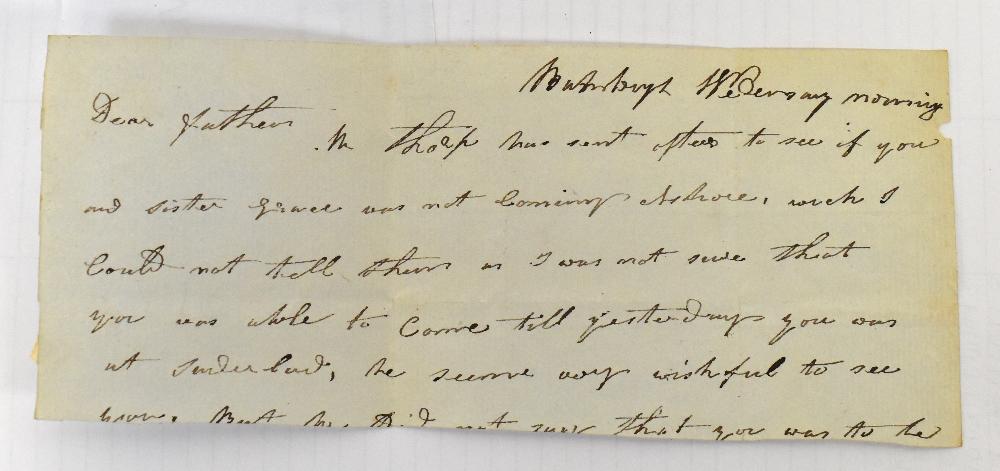 Bambrugh Wedensay morning
Dear father
Mr Thorp has sent after to see if you
and sister Grace was not Coming Ashore, wich I
Could not tell them as I was not sure that
you was able to Come till yesterday you was
at Sunderland, he seeme very wishful to see
you. But he Did not say that you was to be